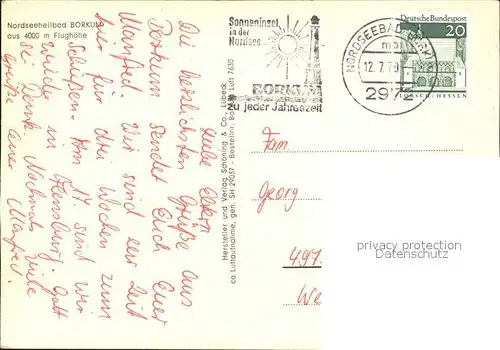 Nordseeheilbad BORKUM
aus 4000 m Flughöhe
Sonneninsel
in der
Nordsee
BORKUM
zu jeder Jahreszeit
NORDSEEBAD BORKUM
12.7.70
2972
Deutsche Bundespost
20
LORSCH/HESSEN
Hersteller und Verlag Schöning & Co., Lübeck
ca Luftaufnahme, gen. SH 29057 - Bestellnr. Bo Luft 7630
Liebe Eltern
Die herzlichsten Grüße aus
Borkum sendet Euch Euer
Manfred. Wir sind zur Zeit
hier für drei Wochen zum
Schießen. Am 17. sind wir
wieder in Flensburg. Gott
sei Dank. Nochmals viele
Grüße Euer Manfred.
Fam
Georg
497
We
privacy protection
Datenschutz